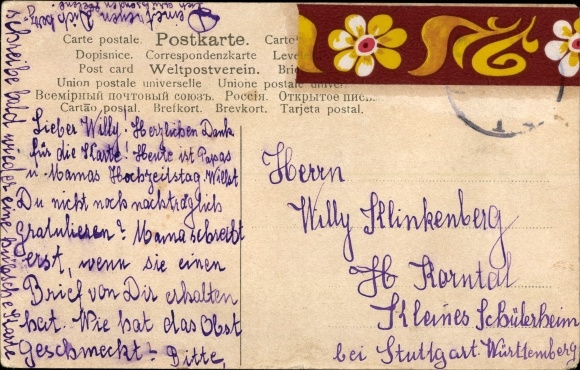 Carte postale. Postkarte. Carto
Dopisnice. Correspondenzkarte Leve
Post card Weltpostverein. Brie
Union postale universelle Unione postale univer
Всемірный почтовый союзъ. Россія. Открытое пис
Cartão postal. Brefkort. Brevkort. Tarjeta postal.
Lieber Willy! Herzlichen Dank
für die Karte! Heute ist Papas
u. Mamas Hochzeitstag. Willst
Du nicht noch nachträglich
gratulieren? Mama schreibt
erst, wenn sie einen
Brief von Dir erhalten
hat. Wie hat das Obst
geschmeckt? Bitte,
schreibe bald wieder eine hübsche Karte
Deinen Dich
Herrn
Willy Klinkenberg
Korntal
Kleines Schülerheim
bei Stuttgart. Württemberg